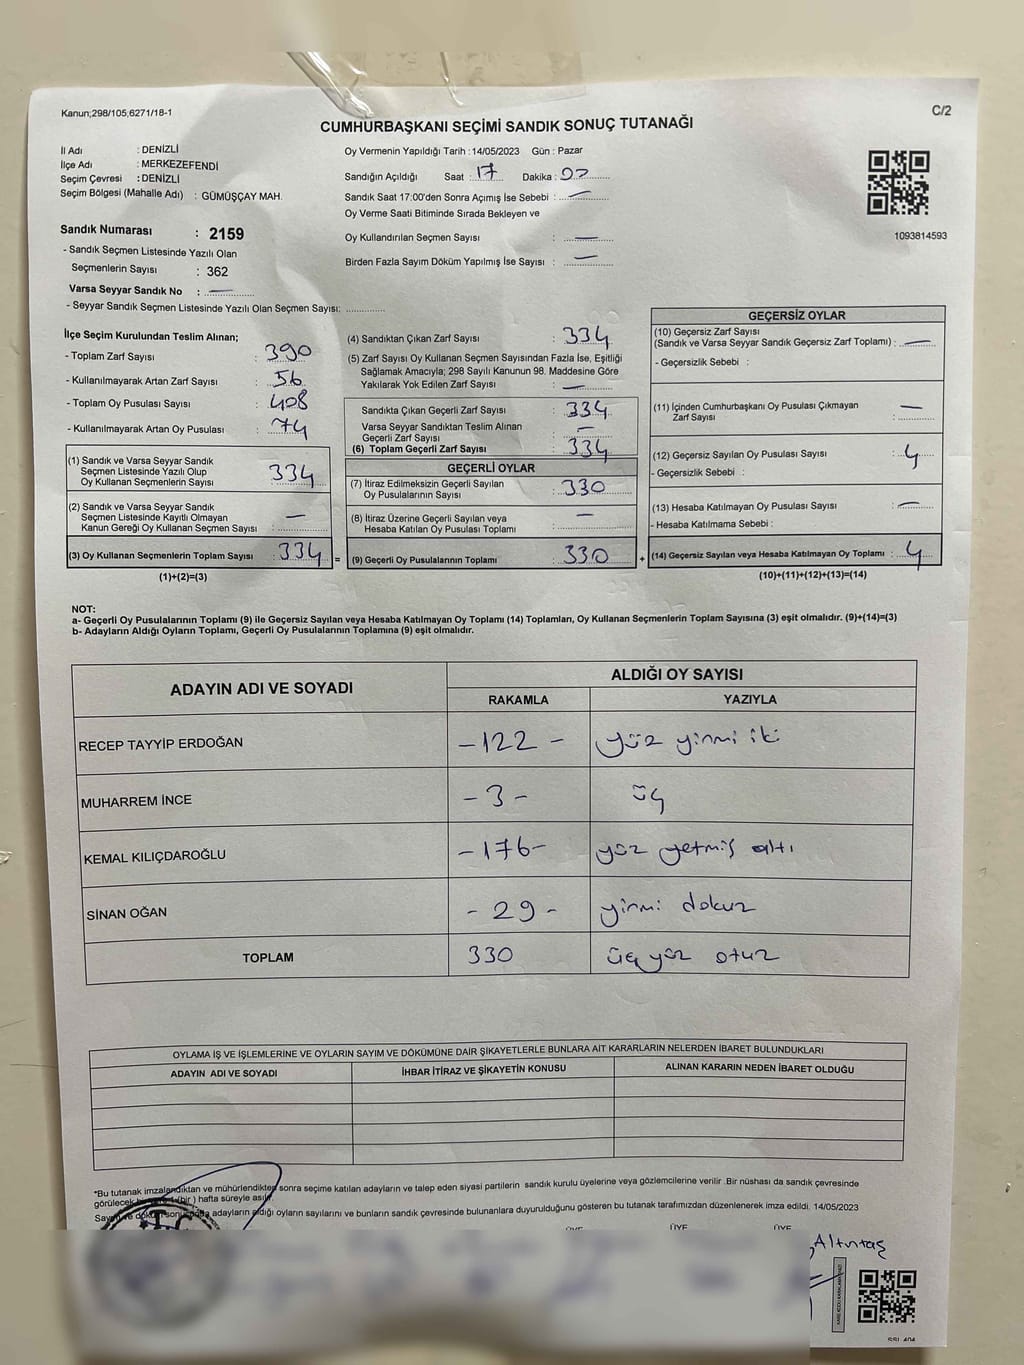 Kanun;298/105,6271/18-1
C/2
CUMHURBAŞKANI SEÇİMİ SANDIK SONUÇ TUTANAĞI
İl Adı : DENİZLİ
İlçe Adı : MERKEZEFENDİ
Seçim Çevresi : DENİZLİ
Seçim Bölgesi (Mahalle Adı) : GÜMÜŞÇAY MAH.
Oy Vermenin Yapıldığı Tarih :14/05/2023 Gün : Pazar
Sandığın Açıldığı Saat : 17 Dakika : 02
Sandık Saat 17:00'den Sonra Açımış İse Sebebi : —
Oy Verme Saati Bitiminde Sırada Bekleyen ve
Oy Kullandırılan Seçmen Sayısı : —
Birden Fazla Sayım Döküm Yapılmış İse Sayısı : —
1093814593
Sandık Numarası : 2159
- Sandık Seçmen Listesinde Yazılı Olan
Seçmenlerin Sayısı : 362
Varsa Seyyar Sandık No : —
- Seyyar Sandık Seçmen Listesinde Yazılı Olan Seçmen Sayısı:
İlçe Seçim Kurulundan Teslim Alınan;
- Toplam Zarf Sayısı : 390
- Kullanılmayarak Artan Zarf Sayısı : 56
- Toplam Oy Pusulası Sayısı : 408
- Kullanılmayarak Artan Oy Pusulası : 74
(1) Sandık ve Varsa Seyyar Sandık
Seçmen Listesinde Yazılı Olup
Oy Kullanan Seçmenlerin Sayısı : 334
(2) Sandık ve Varsa Seyyar Sandık
Seçmen Listesinde Kayıtlı Olmayan
Kanun Gereği Oy Kullanan Seçmen Sayısı : —
(3) Oy Kullanan Seçmenlerin Toplam Sayısı : 334 =
(1)+(2)=(3)
(4) Sandıktan Çıkan Zarf Sayısı : 334
(5) Zarf Sayısı Oy Kullanan Seçmen Sayısından Fazla İse, Eşitliği
Sağlamak Amacıyla; 298 Sayılı Kanunun 98. Maddesine Göre
Yakılarak Yok Edilen Zarf Sayısı : —
Sandıkta Çıkan Geçerli Zarf Sayısı : 334
Varsa Seyyar Sandıktan Teslim Alınan
Geçerli Zarf Sayısı : —
(6) Toplam Geçerli Zarf Sayısı : 334
GEÇERLİ OYLAR
(7) İtiraz Edilmeksizin Geçerli Sayılan
Oy Pusulalarının Sayısı : 330
(8) İtiraz Üzerine Geçerli Sayılan veya
Hesaba Katılan Oy Pusulası Toplamı : —
(9) Geçerli Oy Pusulalarının Toplamı : 330 +
GEÇERSİZ OYLAR
(10) Geçersiz Zarf Sayısı
(Sandık ve Varsa Seyyar Sandık Geçersiz Zarf Toplamı) : —
- Geçersizlik Sebebi :
(11) İçinden Cumhurbaşkanı Oy Pusulası Çıkmayan
Zarf Sayısı : —
(12) Geçersiz Sayılan Oy Pusulası Sayısı : 4
- Geçersizlik Sebebi :
(13) Hesaba Katılmayan Oy Pusulası Sayısı : —
- Hesaba Katılmama Sebebi :
(14) Geçersiz Sayılan veya Hesaba Katılmayan Oy Toplamı : 4
(10)+(11)+(12)+(13)=(14)
NOT:
a- Geçerli Oy Pusulalarının Toplamı (9) ile Geçersiz Sayılan veya Hesaba Katılmayan Oy Toplamı (14) Toplamları, Oy Kullanan Seçmenlerin Toplam Sayısına (3) eşit olmalıdır. (9)+(14)=(3)
b- Adayların Aldığı Oyların Toplamı, Geçerli Oy Pusulalarının Toplamına (9) eşit olmalıdır.
ADAYIN ADI VE SOYADI ALDIĞI OY SAYISI
RAKAMLA YAZIYLA
RECEP TAYYİP ERDOĞAN - 122 - yüz yirmi iki
MUHARREM İNCE - 3 - üç
KEMAL KILIÇDAROĞLU - 176 - yüz yetmiş altı
SİNAN OĞAN - 29 - yirmi dokuz
TOPLAM 330 üçyüz otuz
OYLAMA İŞ VE İŞLEMLERİNE VE OYLARIN SAYIM VE DÖKÜMÜNE DAİR ŞİKAYETLERLE BUNLARA AİT KARARLARIN NELERDEN İBARET BULUNDUKLARI
ADAYIN ADI VE SOYADI İHBAR İTİRAZ VE ŞİKAYETİN KONUSU ALINAN KARARIN NEDEN İBARET OLDUĞU
*Bu tutanak imzalandıktan ve mühürlendikten sonra seçime katılan adayların ve talep eden siyasi partilerin sandık kurulu üyelerine veya gözlemcilerine verilir .Bir nüshası da sandık çevresinde
görülecek bir yere 1 (bir ) hafta süreyle asılır.
Sayım ve döküm sonucunda adayların aldığı oyların sayılarını ve bunların sandık çevresinde bulunanlara duyurulduğunu gösteren bu tutanak tarafımızdan düzenlenerek imza edildi. 14/05/2023
ÜYE ÜYE ÜYE
Altıntaş